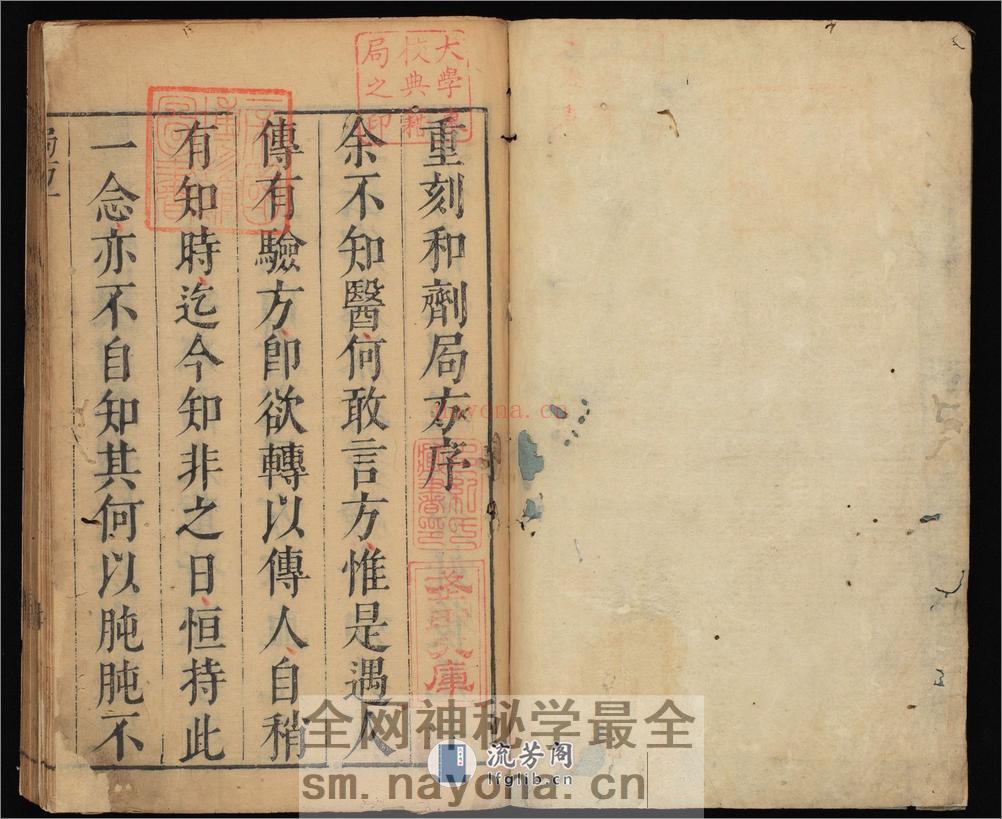 重刻和劑局方序
余不知醫何敢言方惟是遇人
傳有驗方即欲轉以傳人自稍
有知時迄今知非之日恒持此
一念亦不自知其何以肫肫不
大學
校典籍
局之印
nayona.cn
全网神秘学最全
流芳阁
lfglib.cn
sm.nayona.cn